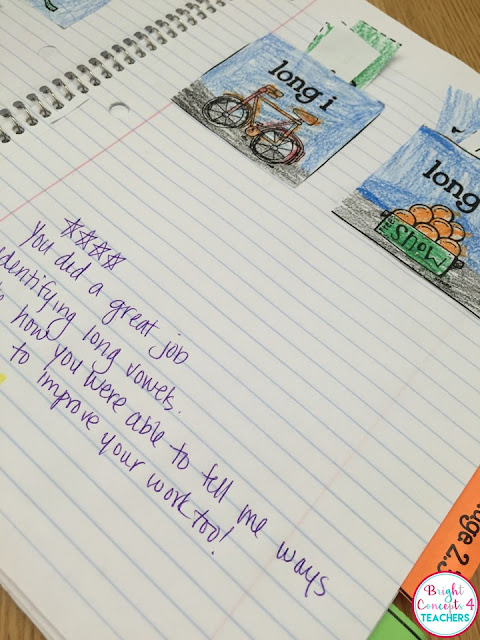 long i
long
Show
☆☆☆☆
You did a great job
identifying long vowels.
how you were able to tell me ways
to improve your work too!
Bright
Concepts 4
TEACHERS